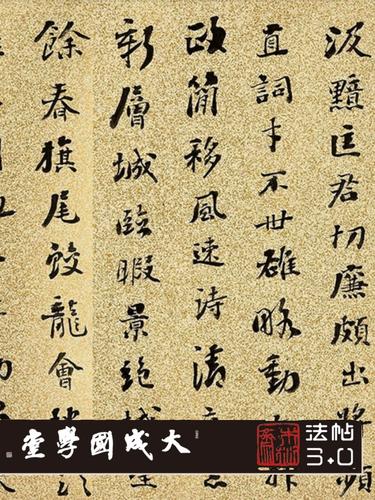 汲黯匡君切廉頗出將
直詞才不世雄略動
政簡移風速詩清
新層城臨暇景絕
餘春旗尾蛟龍會
大成國學堂
法帖
3.0